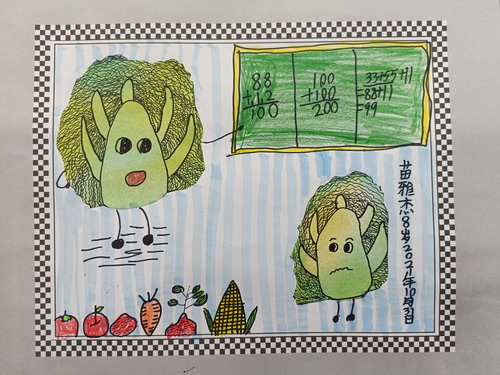 88
+12
100
100
+100
200
33+55+11
=88+11
=99
苗雅杰8岁2021年10月31日